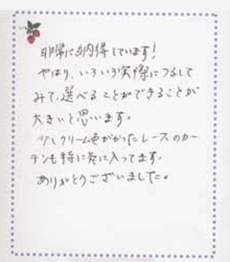 非常に納得しています！
やはり、いろいろ実際につるして
みて、選べることができることが
大きいと思います。
少しクリーム色がかったレースのカー
テンも特に気に入ってます。
ありがとうございました。